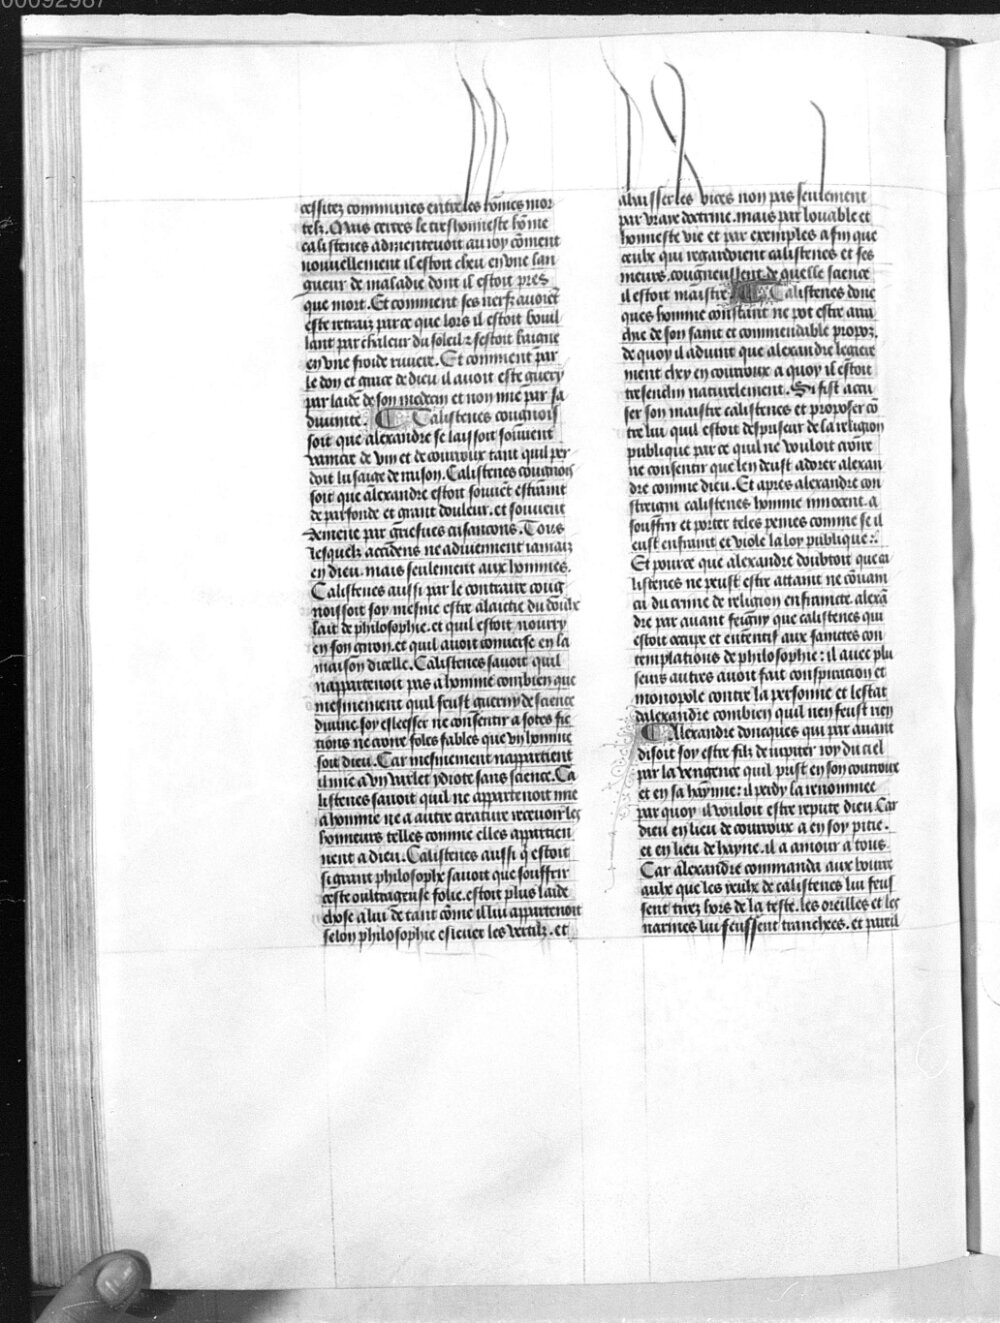 00092987
cessitez communes entre les hõmes mor
telz. Mais certes le treshonneste hõme
calistenes admentevoit au roy cõment
nouvellement il estoit cheu en une lan
gueur de maladie dont il estoit pres
que mort. Et comment ses nerfz avoiẽt
este retraiz parce que lors il estoit bouil
lant par chaleur du soleil ⁊ sestoit baigne
en une froide riviere. Et comment par
le don et grace de dieu il avoit este guery
par laide de son medecin et non mie par sa
divinite. Calistenes congnois
soit que alexandre se laissoit souvent
vaincre de vin et de courroux tant quil per
doit lusaige de raison. Calistenes congnois
soit que alexandre estoit souvẽt estraint
de parfonde et grant douleur. et souvent
demene par griefves cusancons. Tous
lesquelz accidens ne adviennent iamaiz
en dieu. mais seulement aux hommes.
Calistenes aussi par le contraire cong
noissoit soy mesme estre alaictie du doulx
lait de philosophie. et quil estoit nourry
en son giron. et quil avoit converse en la
maison dicelle. Calistenes savoit quil
nappartenoit pas a homme combien que
mesmement quil feust guerny de science
divine soy esleesser ne consentir a sotes fic
tions ne croire foles fables que un homme
soit dieu. Car mesmement nappartient
il mie a un varlet ydiote sans science. Ca
listenes savoit quil ne appartenoit mie
a homme ne a autre creature recevoir les
honneurs telles comme elles appartien
nent a dieu. Calistenes aussi q̃ estoit
si grant philosophe savoit que souffrir
ceste oultrageuse folie. estoit plus laide
chose a lui de tant cõme il lui appartenoit
selon philosophie esiever les vertuz. et
abaisser les vices non pas seulement
par vraie doctrine. mais par louable et
honneste vie et par exemples afin que
ceulx qui regardoient calistenes et ses
meurs. congneussent de quelle science
il estoit maistre Calistenes donc
ques homme constant ne pot estre arra
chie de son saint et commendable propoz.
de quoy il advint que alexandre legiere
ment chey en courroux a quoy il estoit
tresenclin naturelement. Si fist accu
ser son maistre calistenes et proposer cõ
tre lui quil estoit despriseur de la religion
publique par ce quil ne vouloit croire
ne consentir que len deust adorer alexan
dre comme dieu. Et apres alexandre con
streigni calistenes homme innocent. a
souffrir et porter teles peines comme se il
eust enfraint et viole la loy publique :.
Et pource que alexandre doubtoit que ca
listenes ne peust estre attaint ne cõvain
cu du crime de religion enfraincte. alexã
dre par avant feigny que calistenes qui
estoit occupe et ententif aux sainctes con
templations de philosophie : il avec plu
seurs autres avoit fait conspiracion et
monopole contre la personne et lestat
dalexandre combien quil nen feust rien
Alexandre doncques qui par avant
disoit soy estre filz de iupiter roy du ciel
par la vengence quil prist en son courroux
et en sa hayne : il perdy la renommee
par quoy il vouloit estre repute dieu. Car
dieu en lieu de courroux a en soy pitie.
et en lieu de hayne. il a amour a tous
Car alexandre commanda aux bourre
aulx que les yeulx de calistenes lui feus
sent tirez hors de la teste. les oreilles et les
narines lui feussent tranchees. et pareil